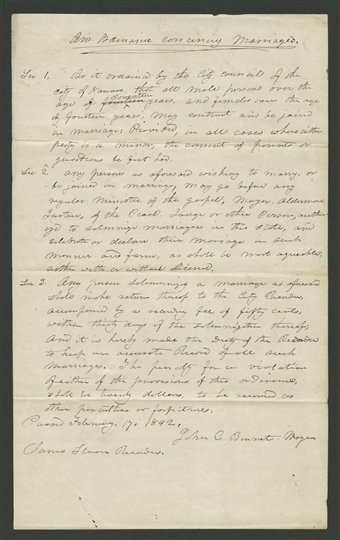 An Ordinance concerning Marriages.
Sec 1. Be it ordained by the City Council of the
City of Nauvoo, that all male persons over the
seventeen
age of fourteen years, and females over the age
of fourteen years, may contract and be joined
in marriage; Provided, in all cases where either
party is a minor, the consent of parents or
guardians be first had.
Sec 2. Any person as aforesaid wishing to marry, or
be joined in marriage, may go before any
regular Minister of the gospel, Mayor, Alderman,
Justice of the Peace, Judge or other Person, author-
ized to solemnize marriages in this State, and
celebrate or declare their Marriage in such
manner and form, as shall be most agreeable,
either with or without license.
Sec 3. Any person solemnizing a marriage as aforesaid
shall make return thereof to the City Recorder,
accompanied by a recording fee of fifty cents,
within thirty days of the solemnization thereof,
And it is hereby made the Duty of the Recorder
to keep an accurate Record of all such
Marriages. The penalty for a violation
of either of the provisions of this ordinance,
shall be twenty dollars, to be recovered as
other penalties or forfeitures.
Passed February, 17, 1842.
John C. Bennet. Mayor
James Sloan Recorder.